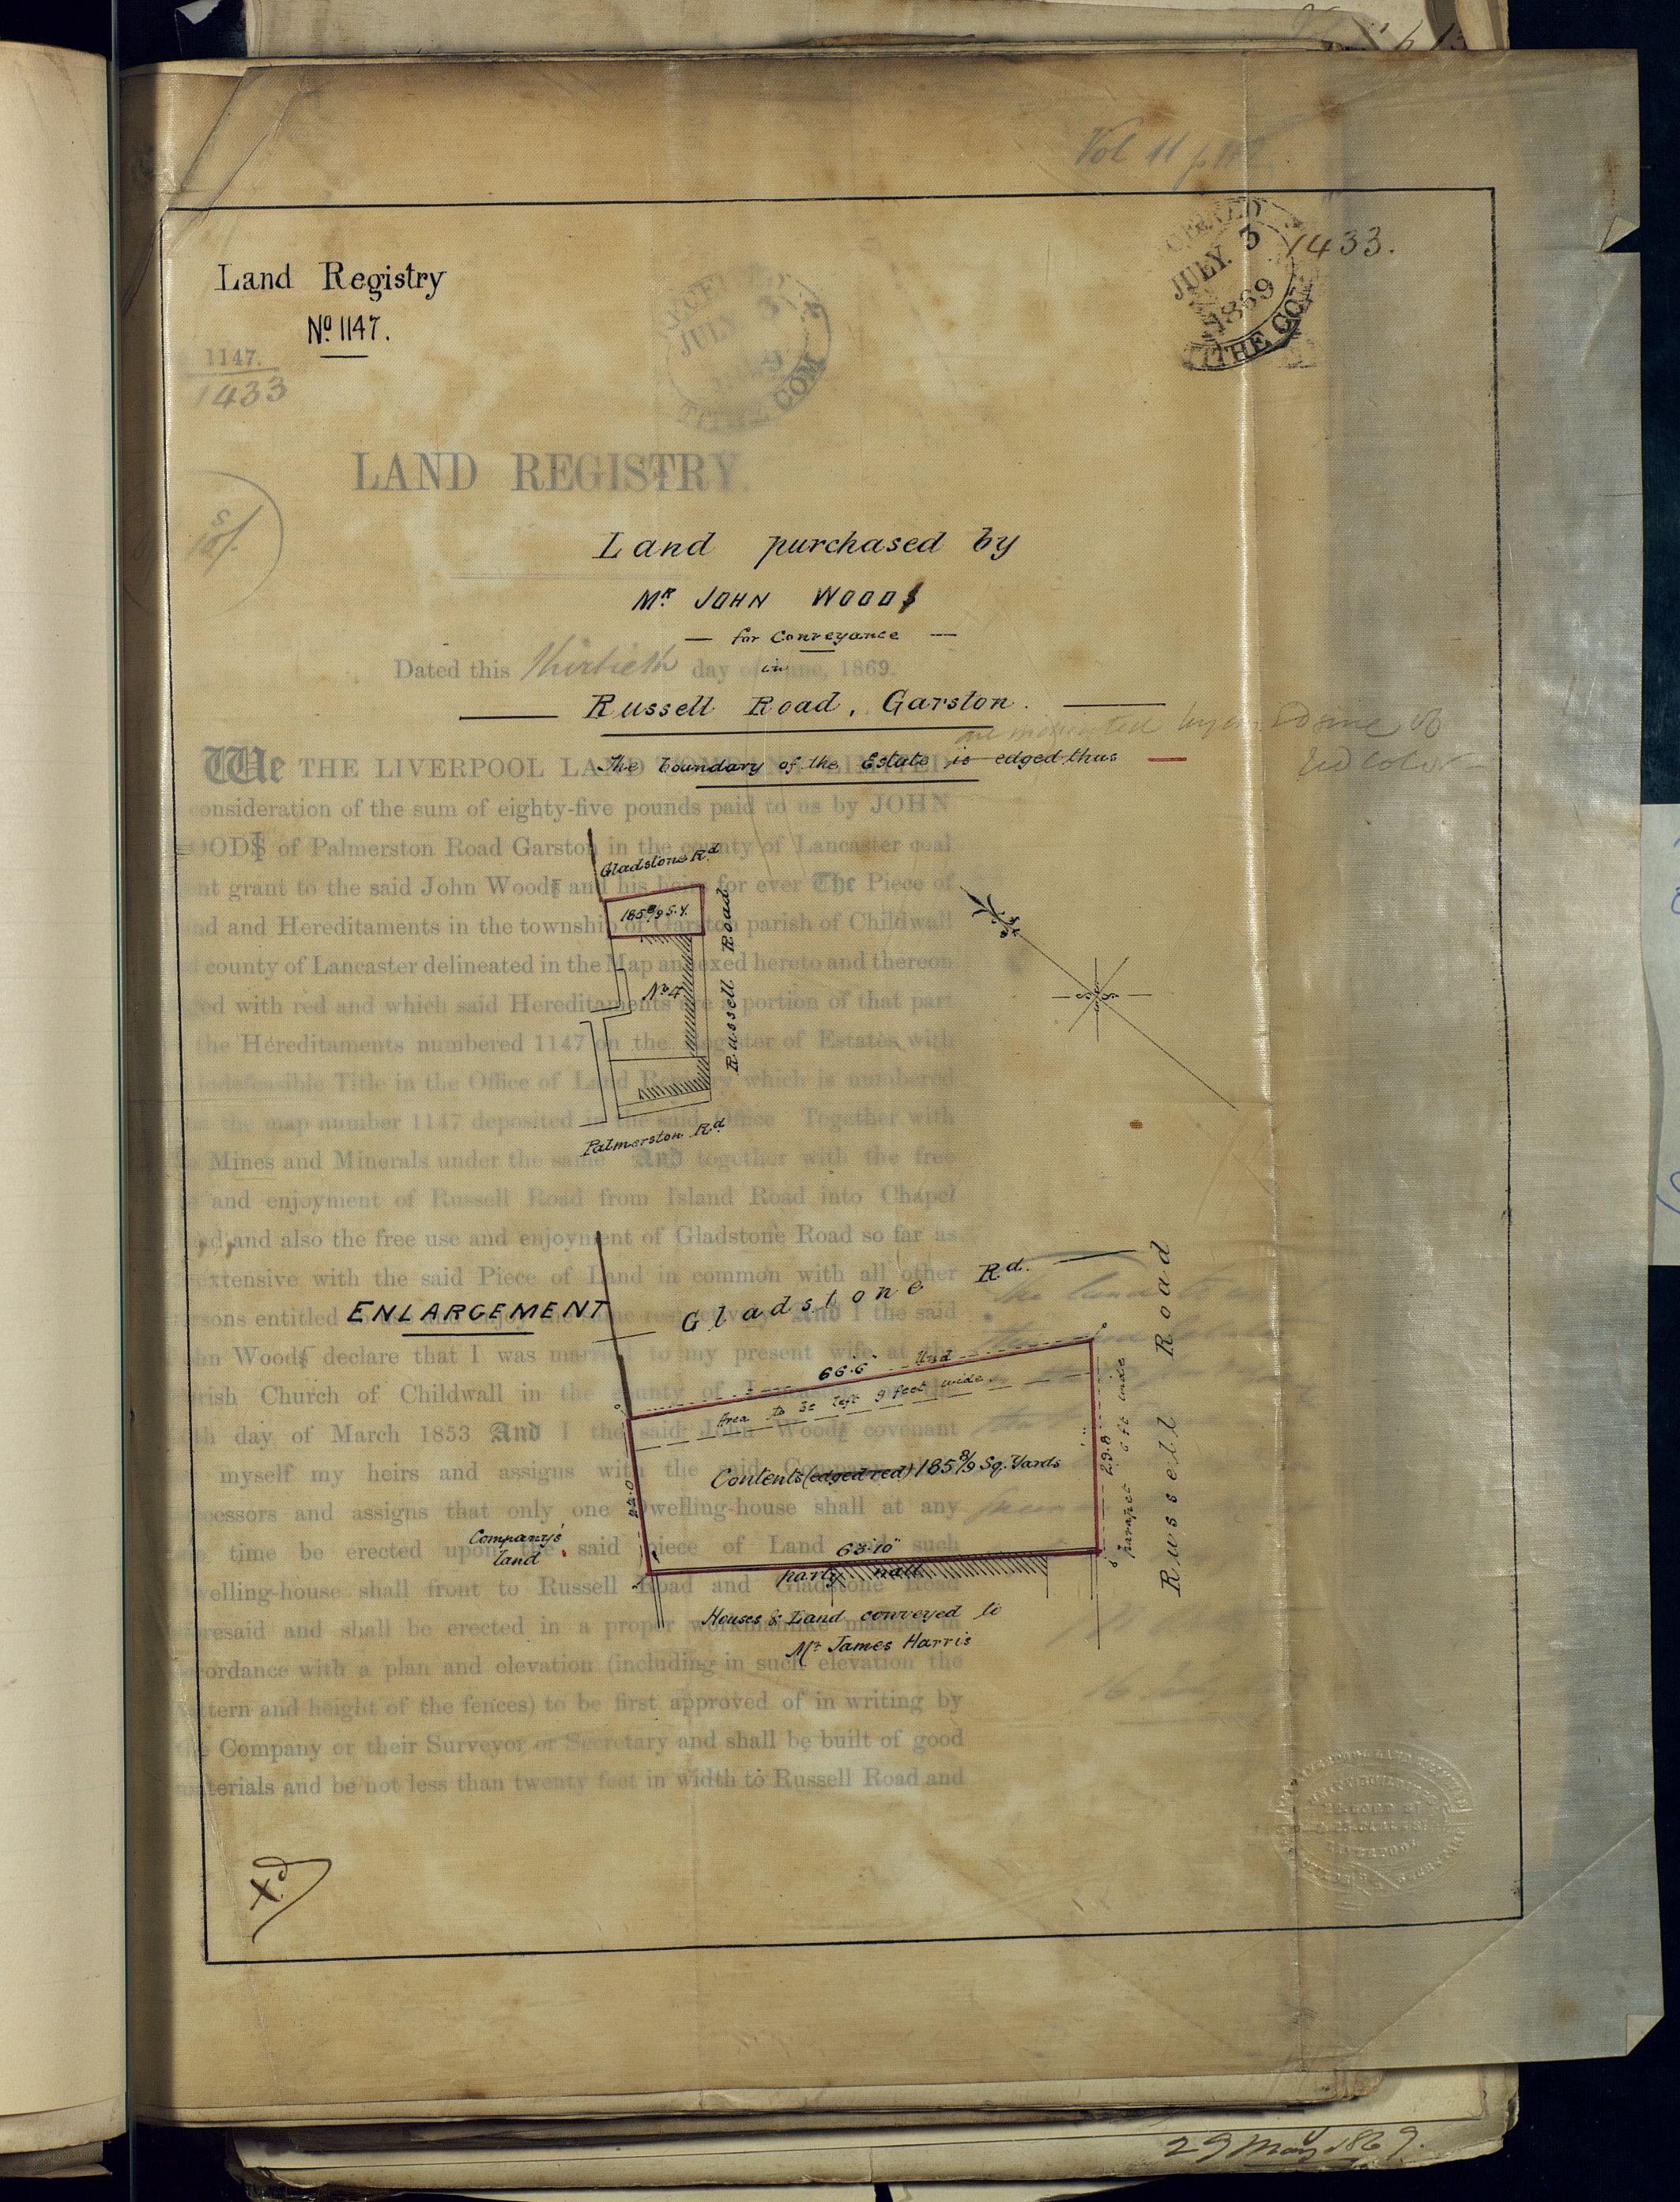 Vol 11 p
JULY 3
1869
TITHE COM
1433.
Land Registry
No. 1147.
1147.
1433
JULY 3
TITHE COM
LAND REGISTRY.
Land purchased by
Mr. JOHN WOOD
— for Conveyance —
in
Dated this thirtieth day of June, 1869.
Russell Road, Garston.
The boundary of the Estate is edged thus
red color
We THE LIVERPOOL LAND
consideration of the sum of eighty-five pounds paid to us by JOHN
of Palmerston Road Garston in the county of Lancaster coal
grant to the said John Wood and his heirs for ever The Piece of
and Hereditaments in the township of Garston parish of Childwall
county of Lancaster delineated in the Map annexed hereto and thereon
with red and which said Hereditaments are a portion of that part
the Hereditaments numbered 1147 on the Register of Estates with
indefeasible Title in the Office of Land Registry which is numbered
the map number 1147 deposited in the said Office Together with
Mines and Minerals under the same And together with the free
and enjoyment of Russell Road from Island Road into Chapel
and also the free use and enjoyment of Gladstone Road so far as
extensive with the said Piece of Land in common with all other
entitled And I the said
Wood declare that I was married to my present wife at the
Church of Childwall in the county of
day of March 1853 And I the said John Wood covenant
myself my heirs and assigns with the said Company
and assigns that only one Dwelling-house shall at any
time be erected upon the said piece of Land such
shall front to Russell Road and Gladstone Road
and shall be erected in a proper workmanlike manner in
with a plan and elevation (including in such elevation the
and height of the fences) to be first approved of in writing by
Company or their Surveyor or Secretary and shall be built of good
and be not less than twenty feet in width to Russell Road and
Gladstone Rd
185 8/9 S.Y.
Russell Road
No 4
Palmerston Rd
ENLARGEMENT
Gladstone Rd.
66.6
Area to be left 9 feet wide.
Contents (edged red) 185 8/9 Sq. Yards
22.0
29.8
parapet 6 ft wide
Russell Road
Company's
land
63.10"
party wall
Houses & Land conveyed to
Mr James Harris
LIVERPOOL
29 May 1869.